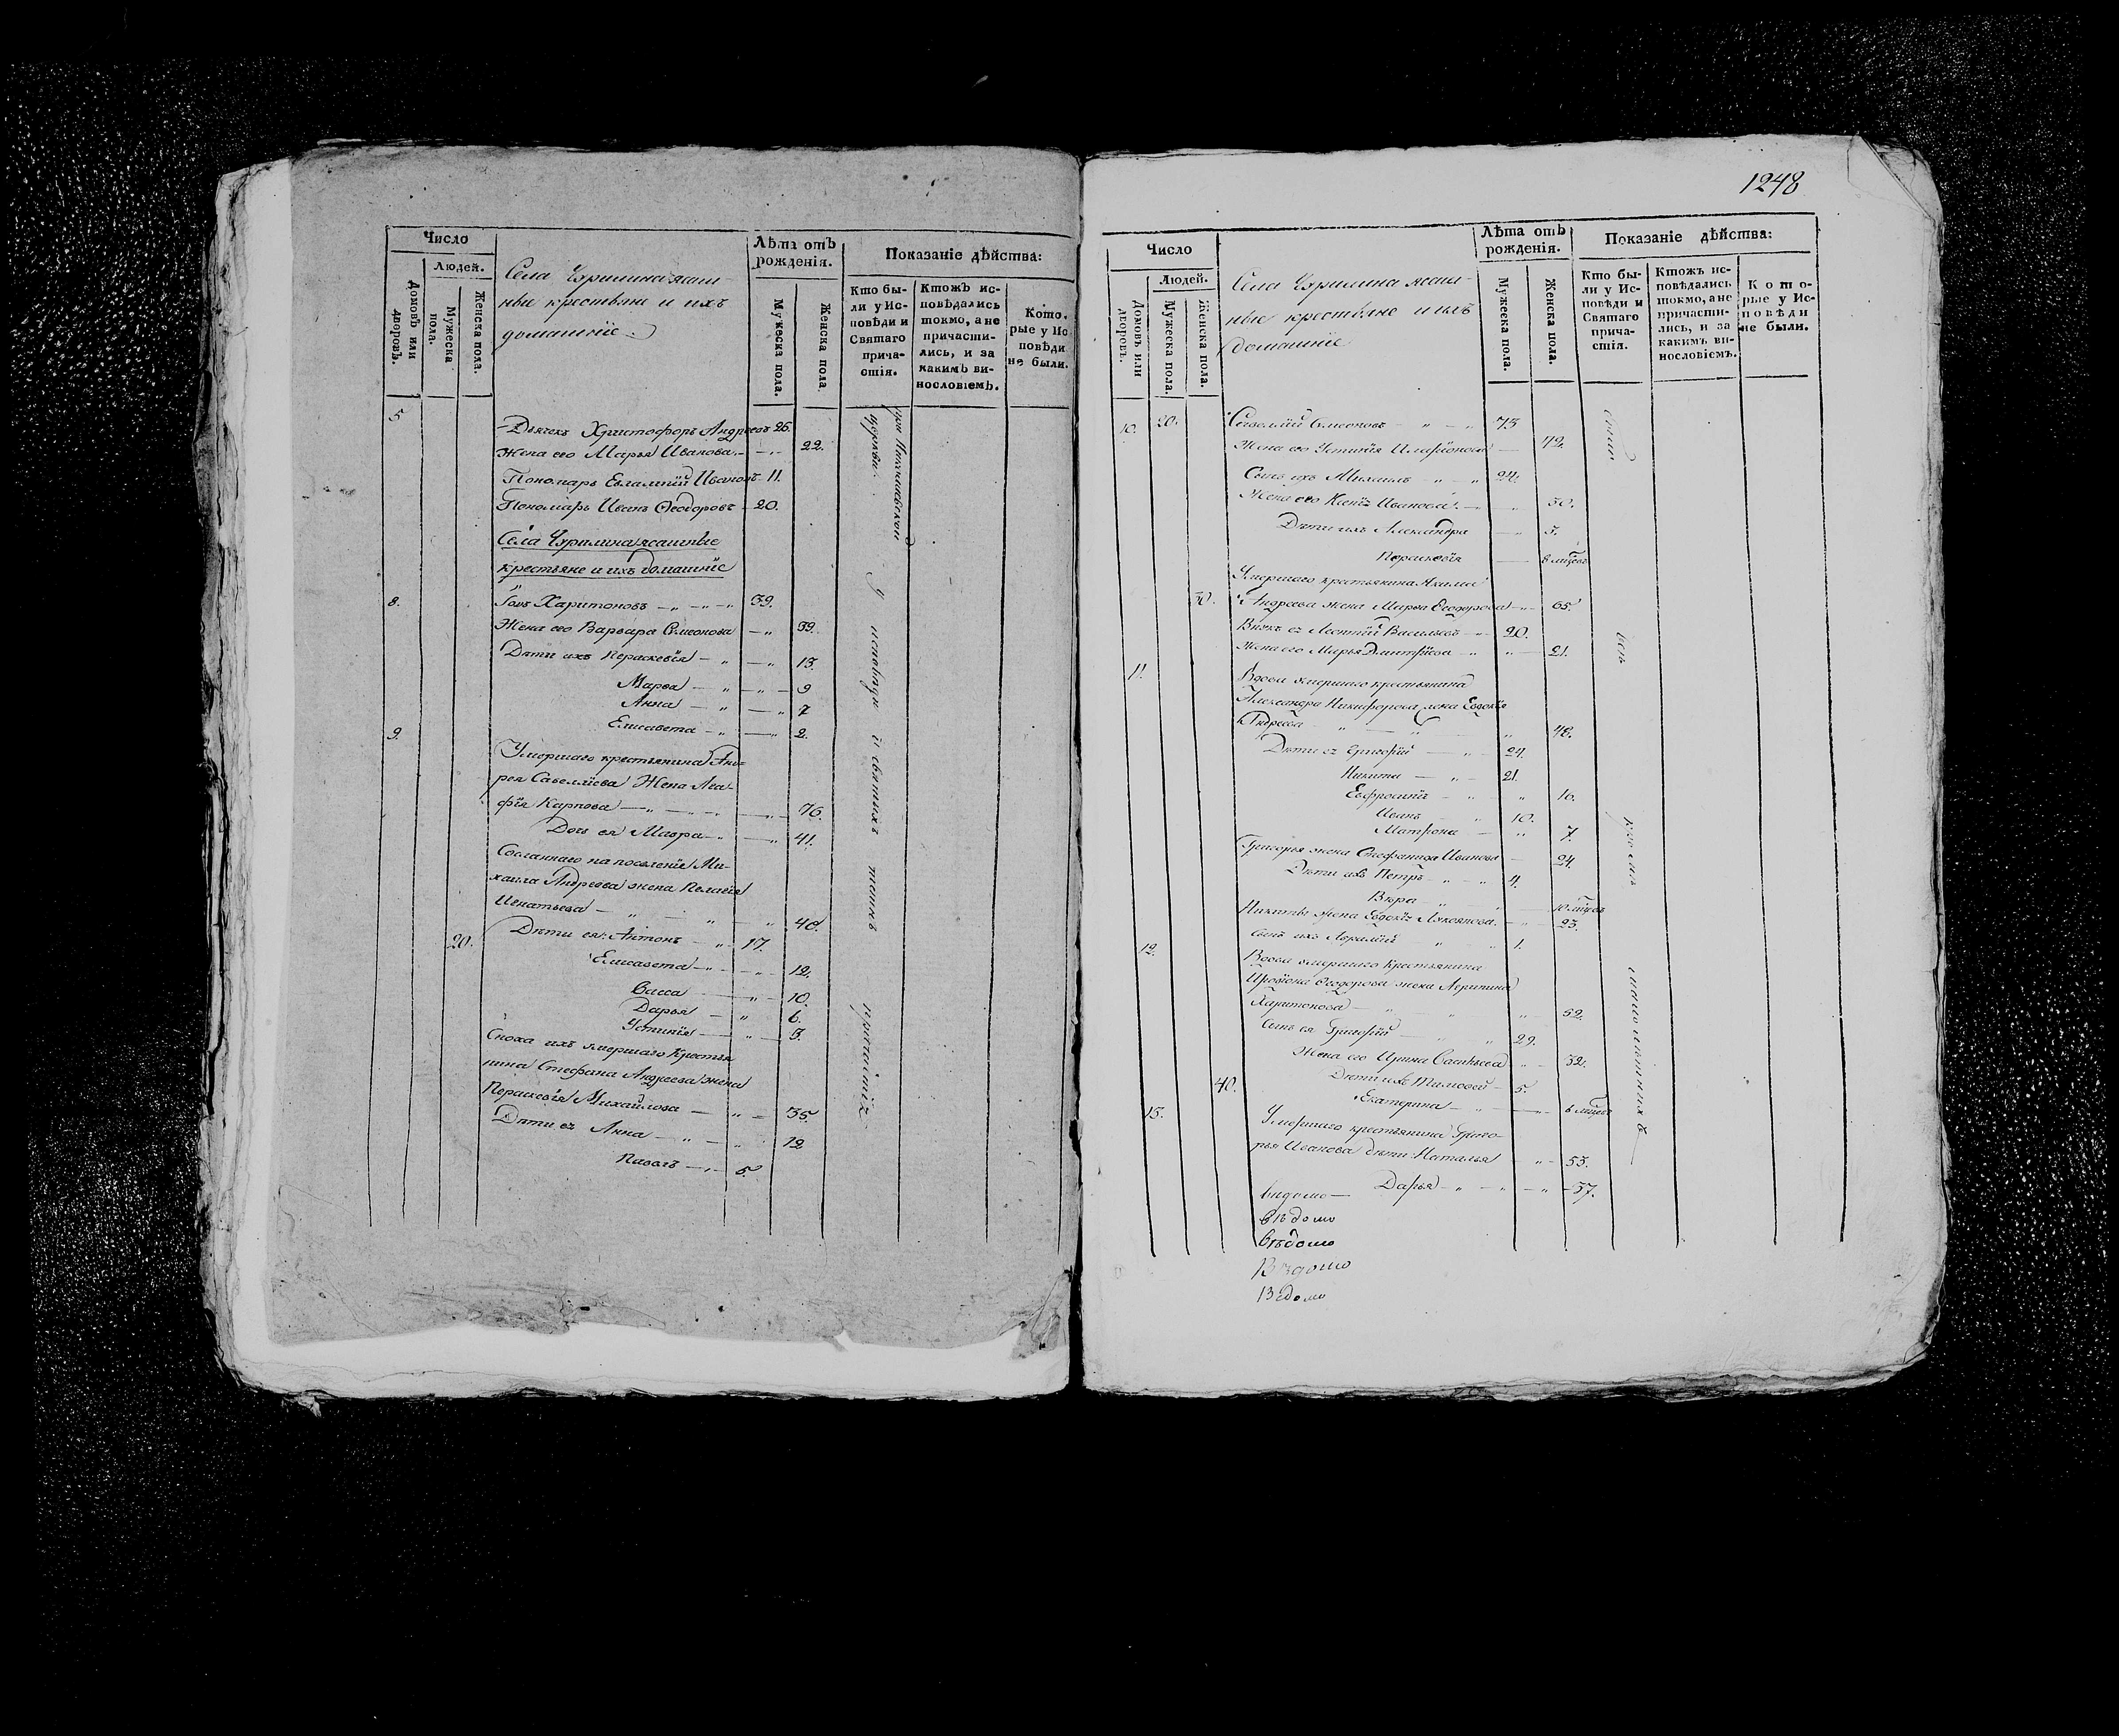 Число
Людей.
Домовъ или дворовъ.
Мужеска пола.
Женска пола.
Села Чурилина ясаш
ные крестьяне и ихъ
домашніе.
Лѣта отъ рожденія.
Мужеска пола.
Женска пола.
Показаніе дѣйства:
Кто бы-
ли у Ис-
повѣди и
Святаго
прича-
стія.
Ктожъ ис-
повѣдались
токмо, а не
причасти-
лись, и за
какимъ ви-
нословіемъ.
Кото-
рые у Ис
повѣди
не были.
5 Дьячекъ Христофоръ Андреевъ 26.
Жена его Марья Иванова 22.
Пономарь Евлампій Ивановъ 11.
Пономарь Иванъ Ѳеодоровъ 20.
Села Чурилина ясашные
крестьяне и ихъ домашніе
8. Харитоновъ 39.
Жена его Варвара Симеонова 39.
Дѣти ихъ Параскевія 13.
Марѳа 9
Анна 7
Елисавета 2.
9. Умершаго крестьянина Анд-
рея Савеллїева Жена Ага-
фїя Карпова 76.
Дочь ея Мавра 41.
Сосланнаго на поселенїе Ми-
хаила Андреева жена Пелагїя
Игнатьева 48.
20. Дѣти ея: Антонъ 17.
Елисавета 12.
Васса 10.
Дарья 6.
Устинїя 3.
Сноха ихъ умершаго Крестья
нина Стефана Андреева жена
Параскевїя Михайлова 35.
Дѣти ея Анна 12
Павелъ 5.
при
церкви
у исповѣди и святыхъ таинъ
1248
Число
Людей.
Домовъ или дворовъ.
Мужеска пола.
Женска пола.
Села Чурилина ясаш
ные крестьяне и ихъ
домашніе
Лѣта отъ рожденія.
Мужеска пола.
Женска пола.
Показаніе дѣйства:
Кто бы-
ли у Ис-
повѣди и
Святаго
прича-
стія.
Ктожъ ис-
повѣдались
токмо, а не
причасти-
лись, и за
какимъ ви-
нословіемъ.
Кото-
рые у Ис-
повѣди
не были.
10. 20. Савелїй Симеоновъ 73
Жена его Устинїя Иларїонова 72.
Сынъ ихъ Михаилъ 24.
Жена его Ксенїя Иванова 30.
Дѣти ихъ Александра 3.
Параскевїя 8 мцовъ
Умершаго крестьянина Акима
30. Андреева жена Марья Ѳеодорова 65.
Внукъ ея Леонтїй Васильевъ 20.
Жена его Марья Дмитрїева 21.
11. Вдова умершаго крестьянина
Александра Никифорова жена Евдокїя
Андреева 48.
Дѣти ея Григорїй 24.
Никита 21.
Евфросинїя 16.
Иванъ 10.
Матрона 7.
Григорья жена Стефанида Иванова 24.
Дѣти ихъ Петръ 4.
Вѣра 10 мцовъ
Никиты жена Евдокїя Лукоянова 23.
Сынъ ихъ 1.
12. Вдова умершаго Крестьянина
Иродїона Ѳеодорова жена Агрипина
Харитонова 52.
Сынъ ея Григорїй 29.
Жена его Ирина Савельева 32.
40. Дѣти ихъ Тимоѳей 5.
Екатерина 6 мцовъ
13. Умершаго крестьянина Григо-
рья Иванова дѣти: Наталья 53.
Дарья 37.
видомо
вѣдомо
вѣдомо
Вѣдомо
Ведомо